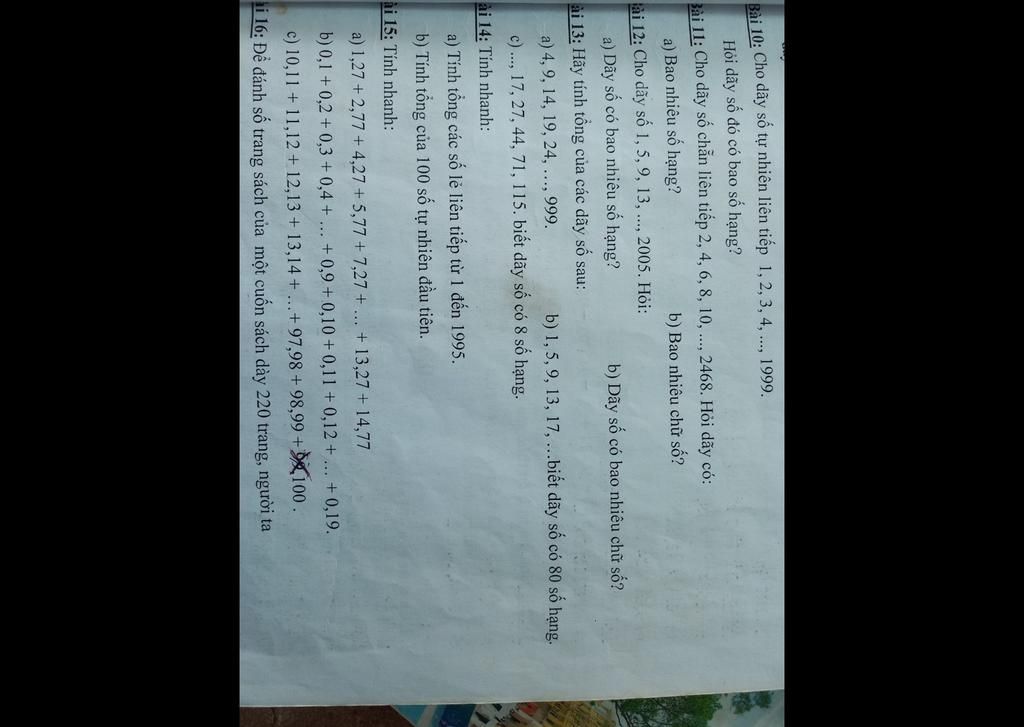 Bài 10: Cho dãy số tự nhiên liên tiếp 1, 2, 3, 4, ..., 1999.
Hỏi dãy số đó có bao số hạng?
Bài 11: Cho dãy số chẵn liên tiếp 2, 4, 6, 8, 10, ..., 2468. Hỏi dãy có:
a) Bao nhiêu số hạng? b) Bao nhiêu chữ số?
ài 12: Cho dãy số 1, 5, 9, 13, ..., 2005. Hỏi:
a) Dãy số có bao nhiêu số hạng? b) Dãy số có bao nhiêu chữ số?
ài 13: Hãy tính tổng của các dãy số sau:
a) 4, 9, 14, 19, 24, ..., 999. b) 1, 5, 9, 13, 17, ...biết dãy số có 80 số hạng.
c) ..., 17, 27, 44, 71, 115. biết dãy số có 8 số hạng.
ài 14: Tính nhanh:
a) Tính tổng các số lẻ liên tiếp từ 1 đến 1995.
b) Tính tổng của 100 số tự nhiên đầu tiên.
ài 15: Tính nhanh:
a) 1,27 + 2,77 + 4,27 + 5,77 + 7,27 + ... + 13,27 + 14,77
b) 0,1 + 0,2 + 0,3 + 0,4 + ... + 0,9 + 0,10 + 0,11 + 0,12 + ... + 0,19.
c) 10,11 + 11,12 + 12,13 + 13,14 + ... + 97,98 + 98,99 + 100 .
ài 16: Để đánh số trang sách của một cuốn sách dày 220 trang, người ta